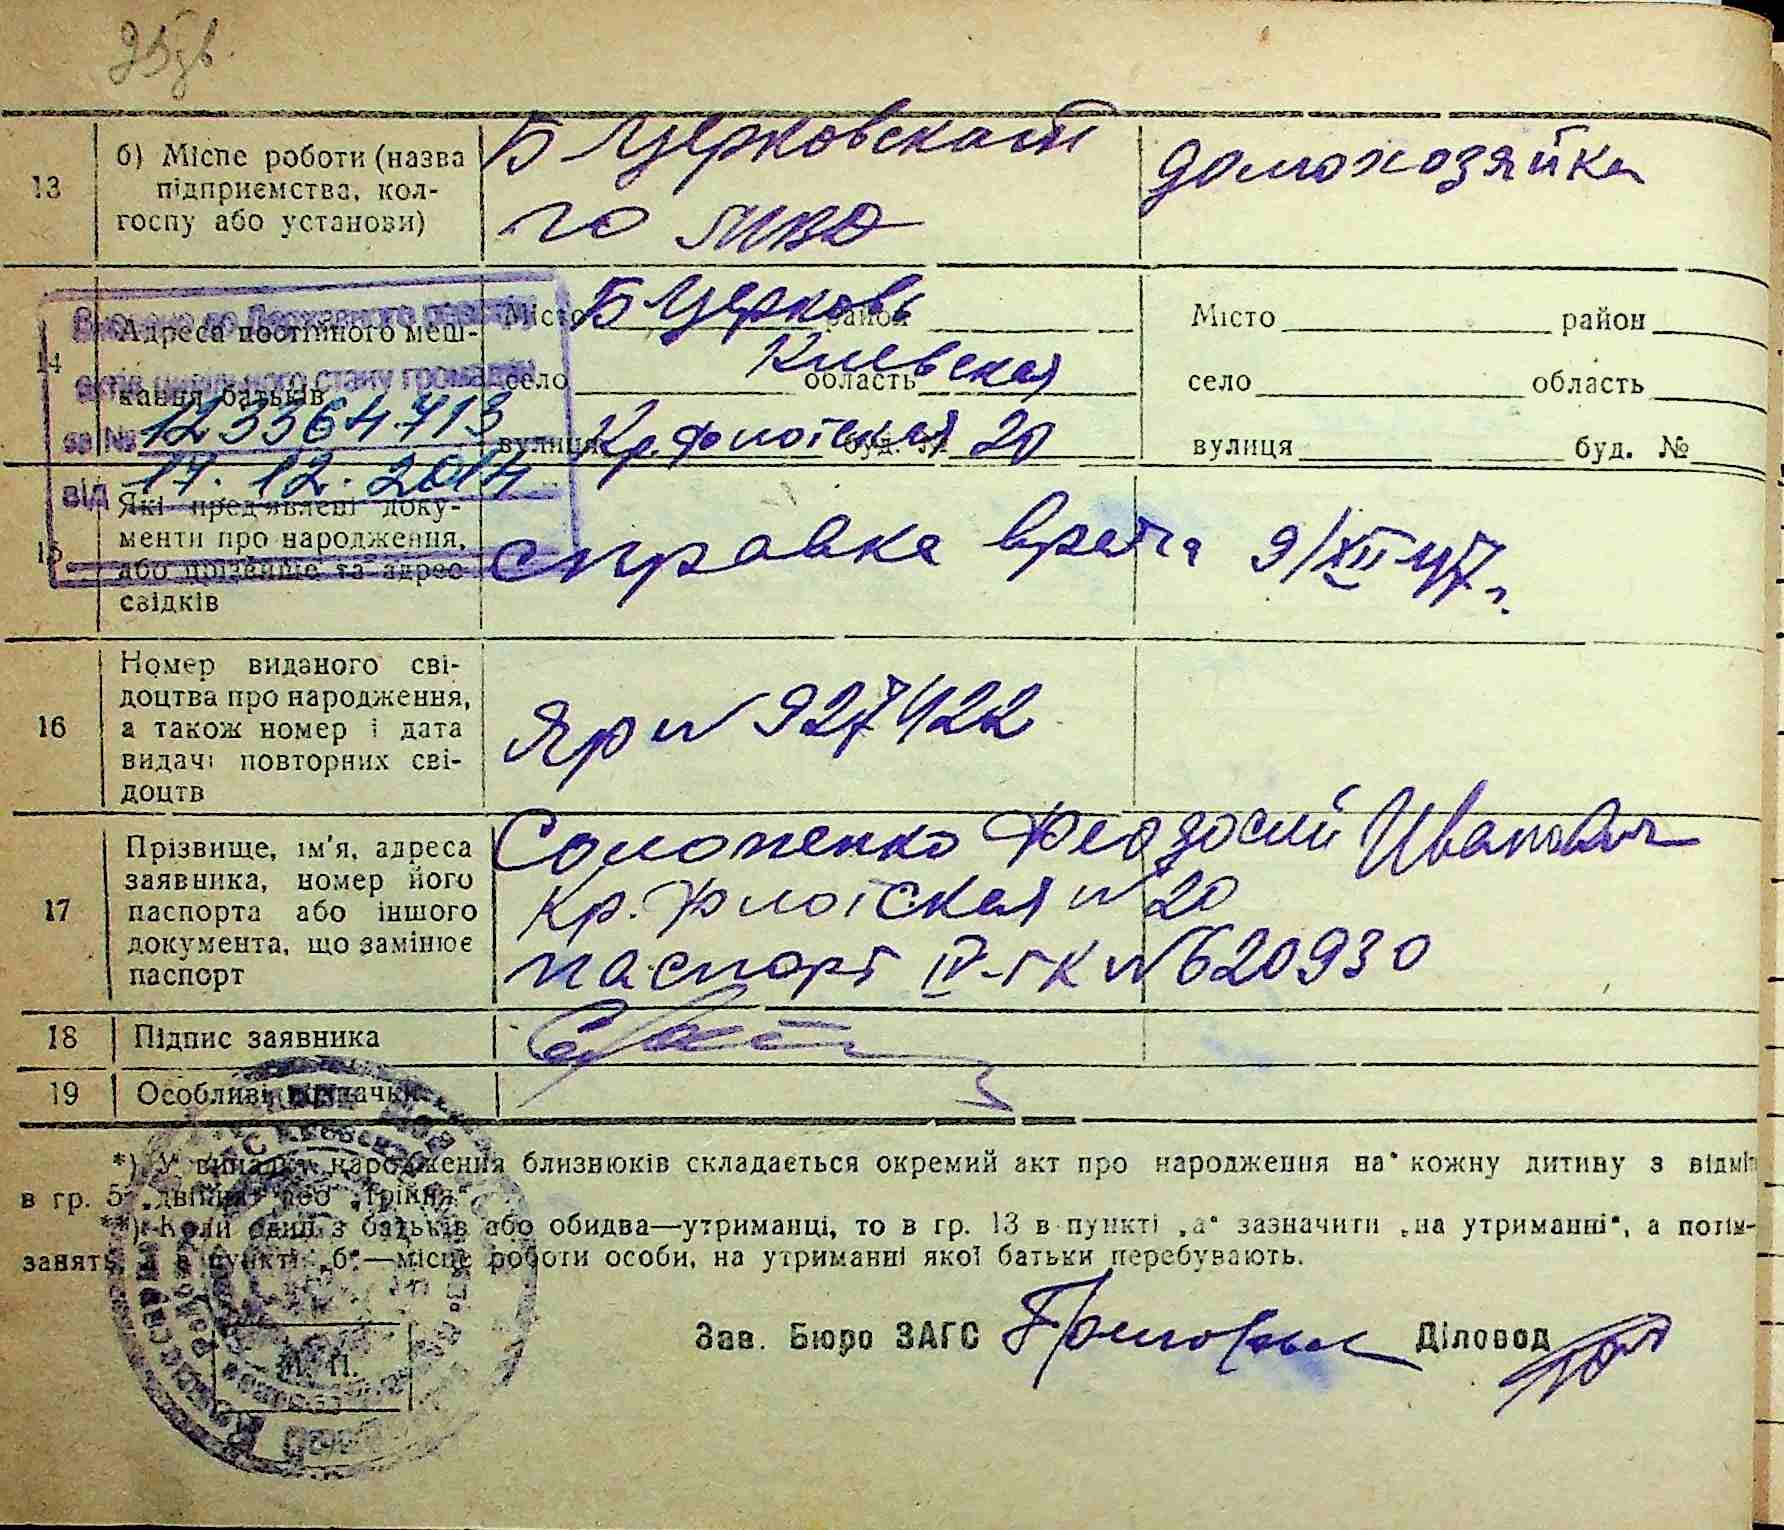 13
б) Місце роботи (назва
підприємства, кол-
госпу або установи)
Б Церковская
го
домохозяйка
14
Адреса постійного меш-
кання батьків
Місто Б Церковь район
село область Киевская
вулиця Кр. Флотская буд. № 20
Місто район
село область
вулиця буд. №
Внесено до Державного реєстру
актів цивільного стану громадян
за № 123364713
від 17.12.2014
15
Які пред'явлені доку-
менти про народження,
або прізвище та адрес
свідків
справка врача 9/XII-47г.
16
Номер виданого сві-
доцтва про народження,
а також номер і дата
видачі повторних сві-
доцтв
Яр № 927422
17
Прізвище, ім'я, адреса
заявника, номер його
паспорта або іншого
документа, що замінює
паспорт
Соломенко Феодосий Иванович
Кр. Флотская № 20
паспорт IV-ГК № 620930
18
Підпис заявника
19
Особливі відзначки
*) У випадку народження близнюків складається окремий акт про народження на кожну дитину з відмі
в гр. 5 „двійня“ або „трійня“
**) Коли один з батьків або обидва—утриманці, то в гр. 13 в пункті „а“ зазначити „на утриманні“, а потім-
занять, а в пункті „б“—місце роботи особи, на утриманні якої батьки перебувають.
М. П.
Зав. Бюро ЗАГС
Діловод